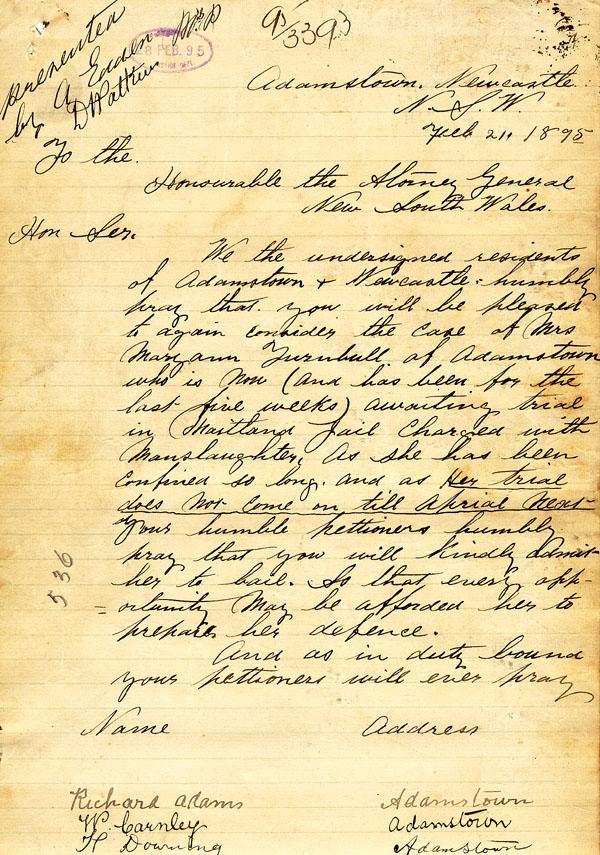 presented
by A Edden M.P.
D Watkins
95/3393
8 FEB. 95
Adamstown. Newcastle.
N. S. W.
Feb 21, 1895
To the.
Honourable the Atorney General
New South Wales.
Hon Ser.
We the undersigned residents
of Adamstown + Newcastle - humbly
pray that. you will be pleased
to again consider the case of Mrs
Maryann Turnbull of Adamstown
who is now (and has been for the
last five weeks) awaiting trial
in Maitland Jail Charged with
Manslaughter, As she has been
Confined so long. and as Her trial
does not come on till Aprial Next
Your humble pettioners humbly
pray that you will kindly admit
her to bail. So that every opp-
=ortunity May be afforded her to
prepare her defence.
And as in duty bound
your pettioners will ever pray
536
Name Address
Richard Adams Adamstown
W. Carnley Adamstown
H Downing Adamstown